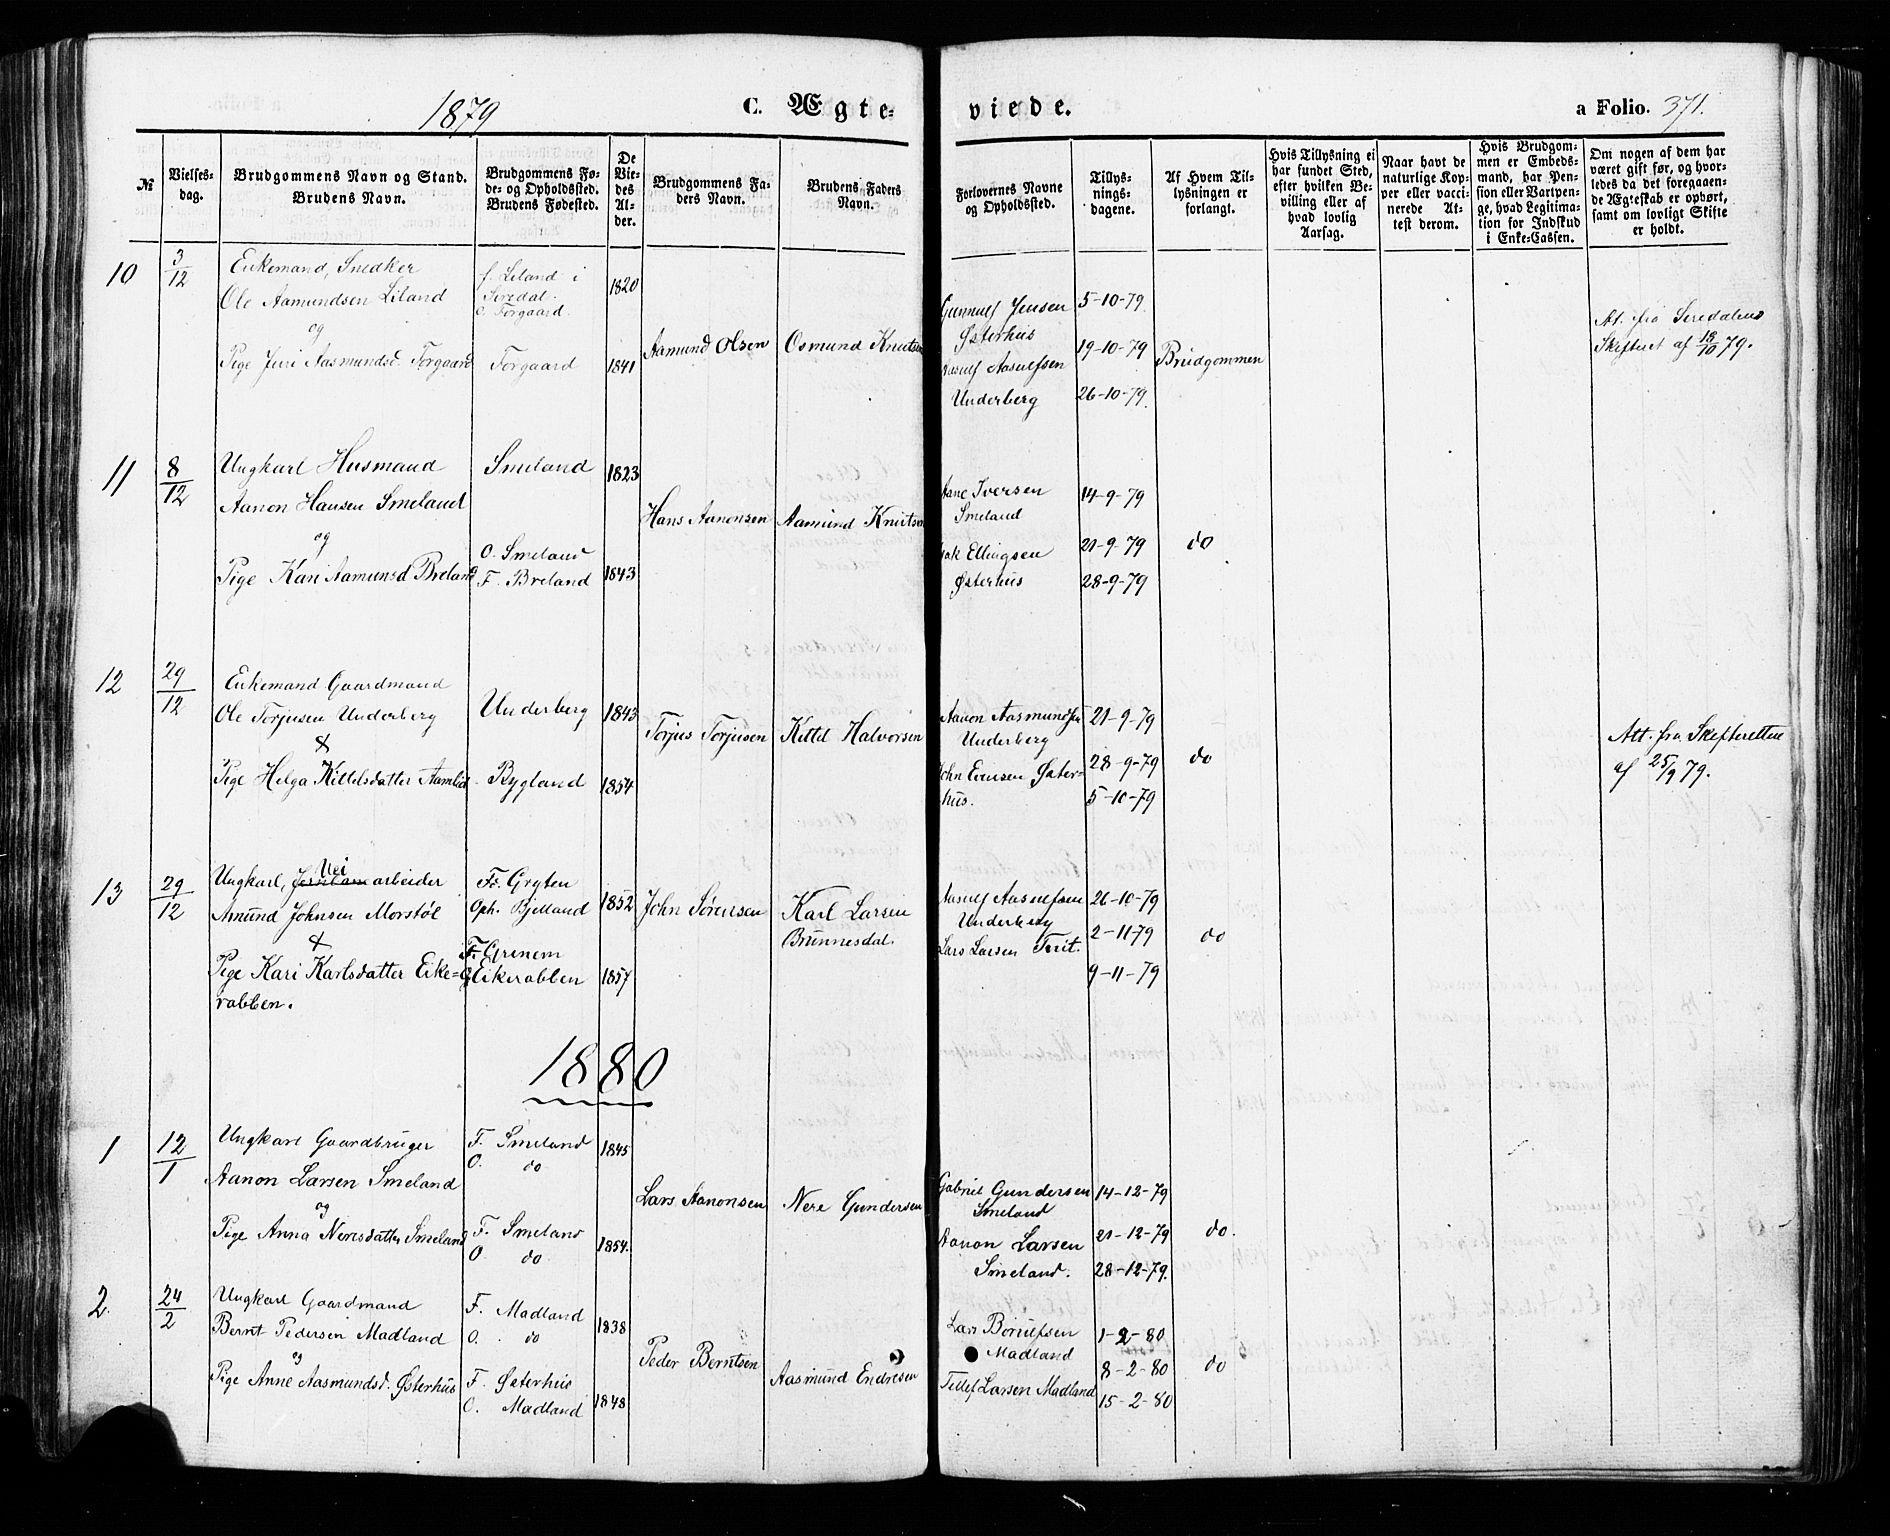 1879
C. Ægte-
viede.
a Folio. 371.
№
Vielses-
dag.
Brudgommens Navn og Stand.
Brudens Navn.
Brudgommens Fø-
de- og Opholdssted.
Brudens Fødested.
De
Vie-
des
Al-
der.
Brudgommens Fa-
ders Navn.
Brudens Faders
Navn.
Forlovernes Navne
og Opholdssted.
Tillys-
nings-
dagene.
Af Hvem Til-
lysningen er
forlangt.
Hvis Tillysning ei
har fundet Sted,
efter hvilken Be-
villing eller af
hvad lovlig
Aarsag.
Naar havt de
naturlige Kop-
per eller vacci-
nerede At-
test derom.
Hvis Brudgom-
men er Embeds-
mand, har Pen-
sion eller Vartpen-
ge, hvad Legitima-
tion for Indskud
i Enke-Cassen.
Om nogen af dem har
været gift før, og hvor-
ledes da det foregaaen-
de Ægteskab er ophørt,
samt om lovligt Skifte
er holdt.
10
3/12
Enkemand, Snedker
Ole Aamundsen Liland
og
Pige Juri Aasmundsd. Torgaard
f. Liland i
Siredal.
o. Torgaard.
Torgaard
1820
1841
Aamund Olsen
Osmund Knutsen
Gunnulf Jensen
Østerhus
Aasulf Aasulfsen
Underberg
5-10-79
19-10-79
26-10-79
Brudgommen
At. fra Siredalens
Skifteret af 13/10 79.
11
8/12
Ungkarl Husmand
Aanon Hansen Smeland
og
Pige Kari Aamunsd Breland
Smeland
O. Smeland
F. Breland
1823
1843
Hans Aanonsen
Aamund Knutsen
Aane Iversen
Smeland
Ellingsen
Østerhus
14-9-79
21-9-79
28-9-79
do
12
29/12
Enkemand Gaardmand
Ole Torjusen Underberg
&
Pige Helga Kittelsdatter Aamlid
Underberg
Bygland
1843
1854
Torjus Torjusen
Kittil Halvorsen
Aanon Aasmundsen
Underberg
John Evensen Øster-
hus.
21-9-79
28-9-79
5-10-79
do
Att. fra Skifteretten
af 25/9 79.
13
29/12
Ungkarl, Vei arbeider
Amund Johnsen Morstøl
&
Pige Kari Karlsdatter Eike-
rabben.
F. Gryten
Oph. Bjelland
F. Grenem
O. Eikerabben
1852
1857
John Sørensen
Karl Larsen
Brunnesdal.
Aasulf Aasulfsen
Underberg
Lars Larsen Tveit.
26-10-79
2-11-79
9-11-79
do
1880
1
12/1
Ungkarl Gaardbruger
Aanon Larsen Smeland
og
Pige Anna Neresdatter Smeland
F. Smeland
O. do
F. Smeland
O. do
1845
1854.
Lars Aanonsen
Nere Gundersen
Gabriel Gundersen
Smeland
Aanon Larsen
Smeland.
14-12-79
21-12-79
28-12-79.
do.
2
24/2
Ungkarl Gaardmand
Bernt Pedersen Madland
og
Pige Anne Aasmundsd. Østerhus
F. Madland
O. do
F. Østerhus
O. Madland
1838
1848
Peder Berntsen
Aasmund Endresen
Lars Børulfsen
Madland
Tellef Larsen Madland
1-2-80
8-2-80
15-2-80
do